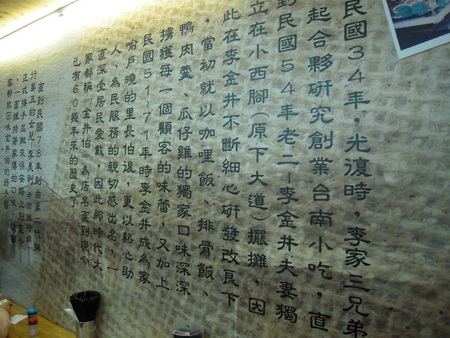 民國34年，光復時，李家三兄弟
起合夥研究創業台南小吃，直
到民國54年老二-李金井夫妻獨
立在小西腳（原下大道）擺攤，因
此在李金井不斷細心研發改良下
，當初就以咖哩飯、排骨飯、
鴨肉羹、瓜仔雞的獨家口味深深
擄獲每一個顧客的味蕾，又加上
民國51~71年時李金井成為家
喻戶曉的里長伯後，更以熱心助
人、為民服務的親切感出名，一
直深受居民愛戴，因此那時代大
家都稱「金井伯」為店名直到現今
已有60幾年來的歷史了。
直到民國78年到台第二代與